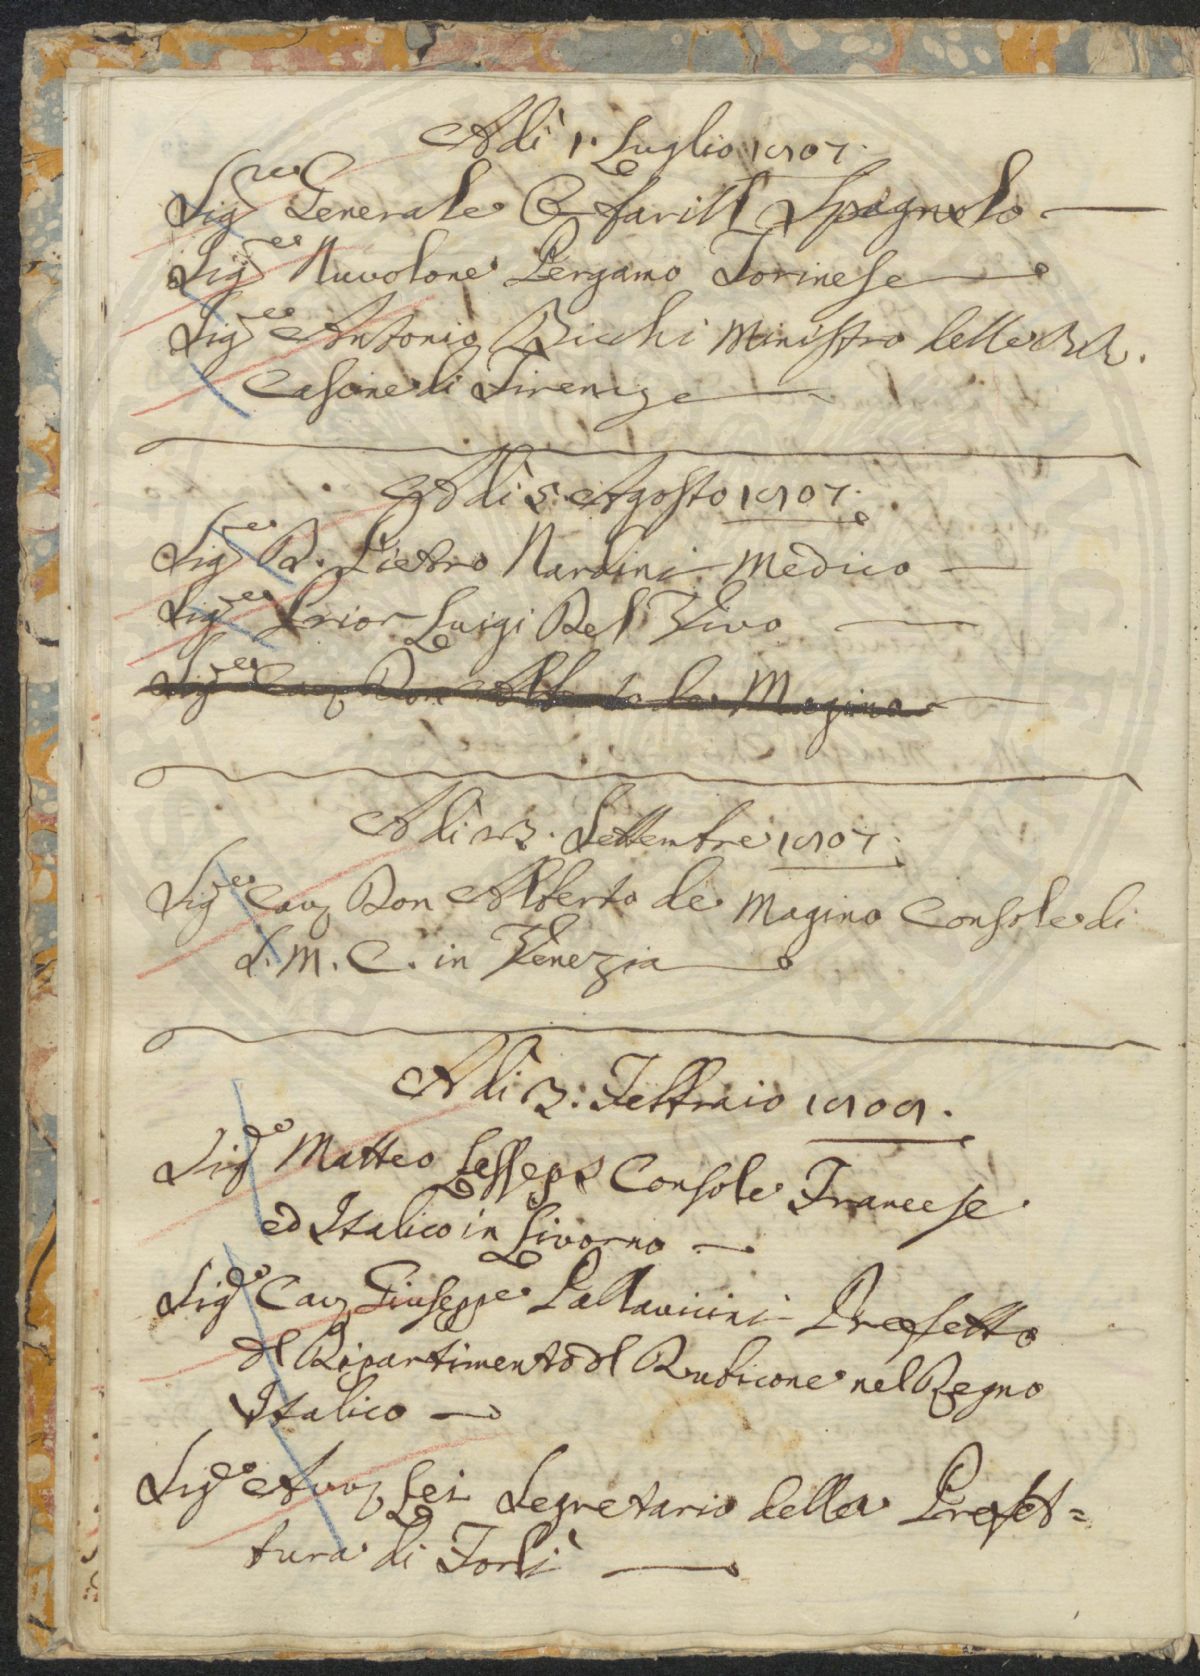 Adì 1. Luglio 1807.
Sig.re Generale O-farill Spagnolo
Sig.re Nuvolone Pergamo Torinese
Sig.re Antonio Bicchi Ministro delle RR.
Casine di Firenze
Adì 5. Agosto 1807.
Sig.re D. Pietro Nardini Medico
Sig.re Prior Luigi Del Vivo
Sig.re Cav. Don Alberto de Magino
Adì 23. Settembre 1807.
Sig.re Cav. Don Alberto de Magino Console di
S. M. C. in Venezia
Adì 3. Febbraio 1808.
Sig.re Matteo Lesseps Console Francese
ed Italico in Livorno
Sig.re Cav. Giuseppe Pallavicini Prefetto
del Dipartimento del Rubicone nel Regno
Italico
Sig.re Avv. Segretario della Prefet=
tura di Forlì